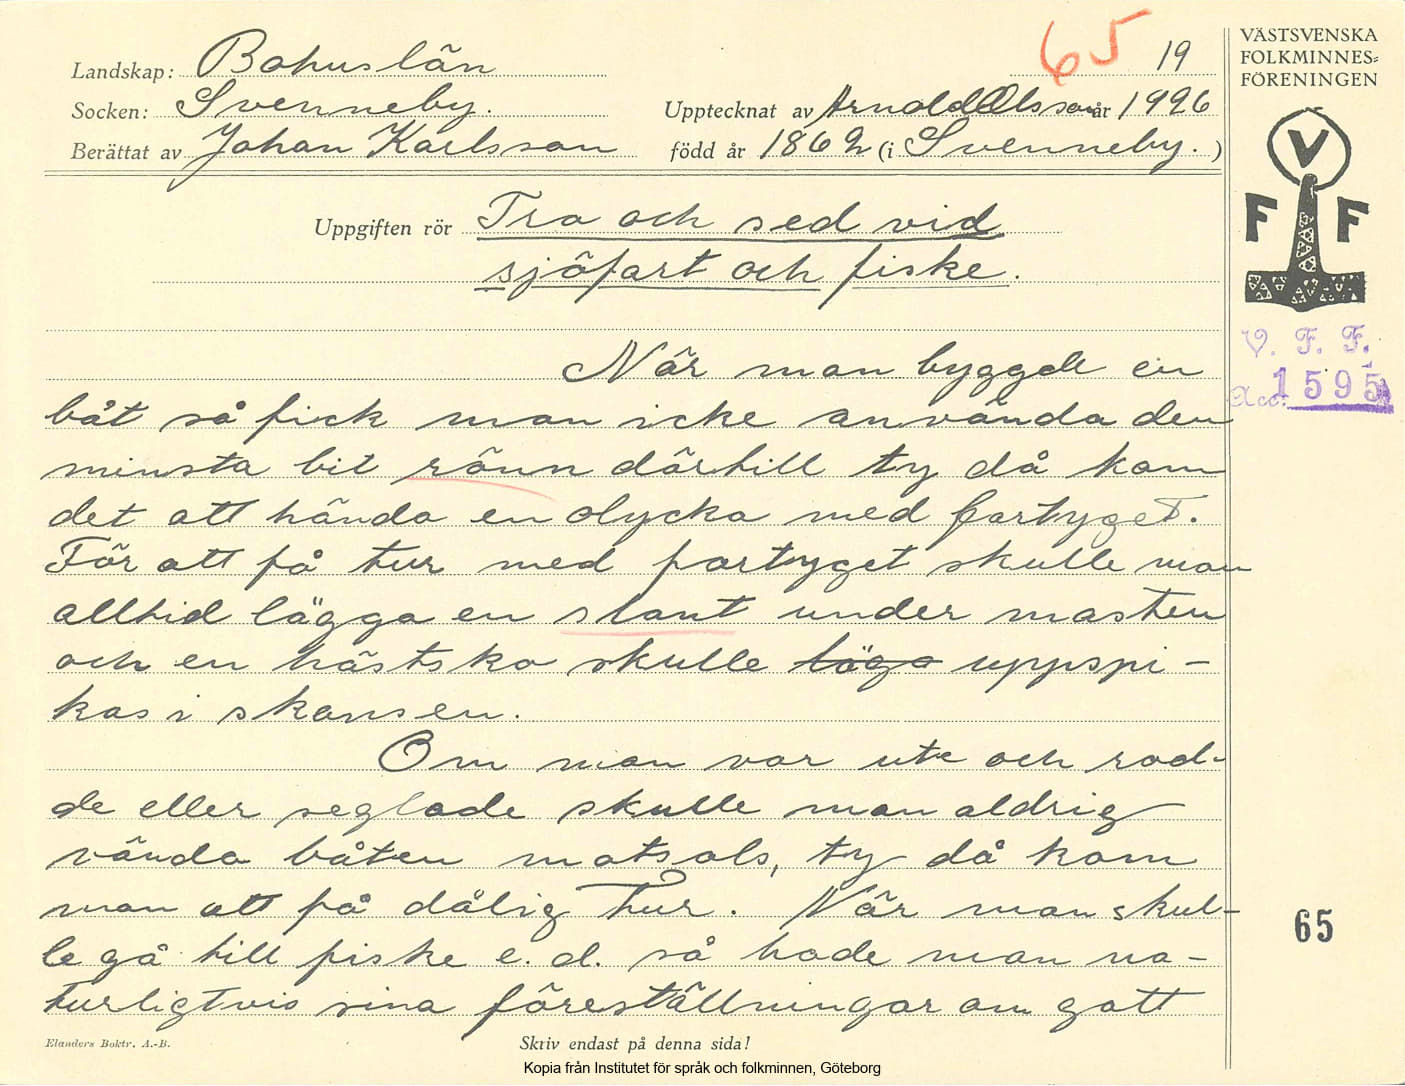 65 19
Landskap: Bohuslän
Socken: Svenneby.
Upptecknat av Arnold Olsson år 1926
Berättat av Johan Karlsson
född år 1862 (i Svenneby.)
Uppgiften rör Tro och sed vid
sjöfart och fiske.
När man byggde en
båt så fick man icke använda den
minsta bit rönn därtill ty då kom
det att hända en olycka med fartyget.
För att få tur med fartyget skulle man
alltid lägga en slant under masten
och en hästsko skulle läga uppspi-
kas i skansen.
Om man var ute och rod-
de eller seglade skulle man aldrig
vända båten motsols, ty då kom
man att få dålig tur. När man skul-
le gå till fiske e. d. så hade man na-
turligtvis sina föreställningar om gott
Elanders Boktr. A.-B.
Skriv endast på denna sida!
Kopia från Institutet för språk och folkminnen, Göteborg
VÄSTSVENSKA
FOLKMINNES=
FÖRENINGEN
V
F F
V. F. F.
Acc: 1595
65